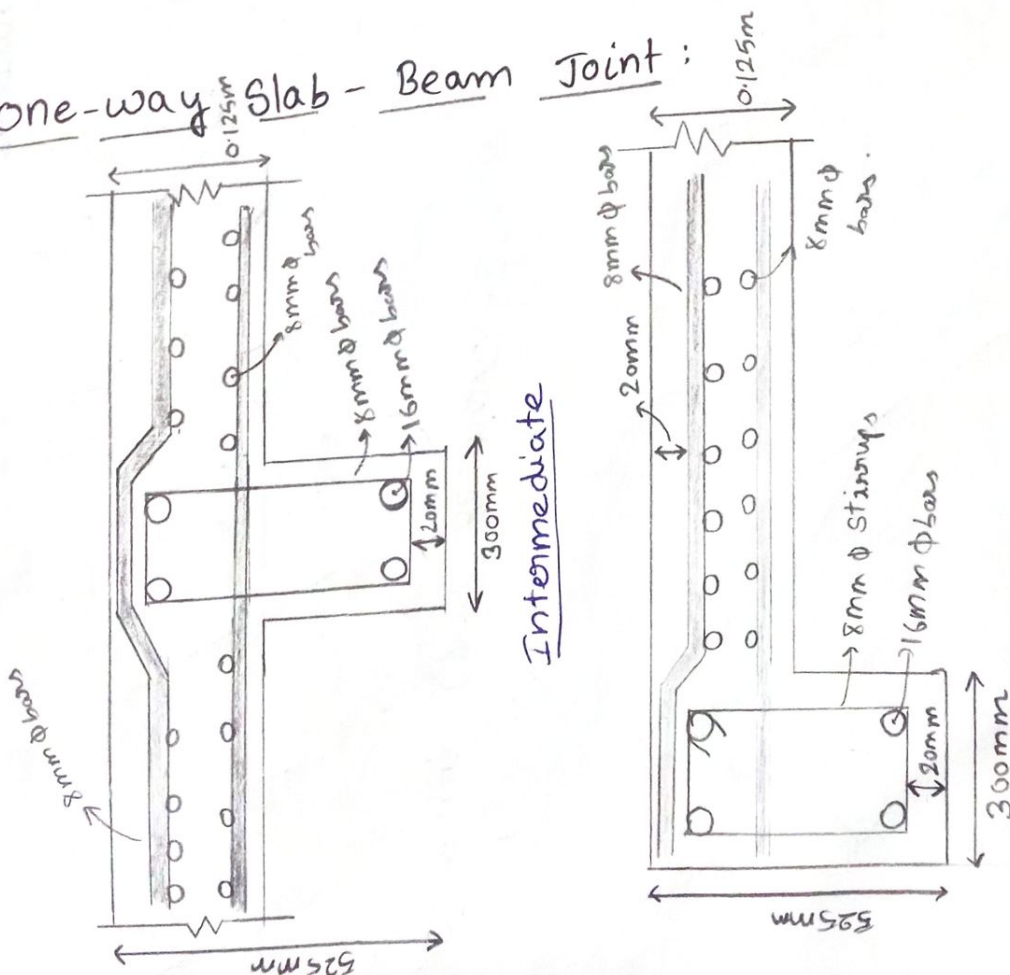 One-way Slab - Beam Joint :
0.125m
8mm ϕ bars
8mm ϕ bars
16mm ϕ bars
20mm
300mm
8mm ϕ bars
525mm
Intermediate
0.125m
8mm ϕ bars
8mm ϕ
bars.
20mm
8mm ϕ stirrups
16mm ϕ bars
20mm
300mm
525mm